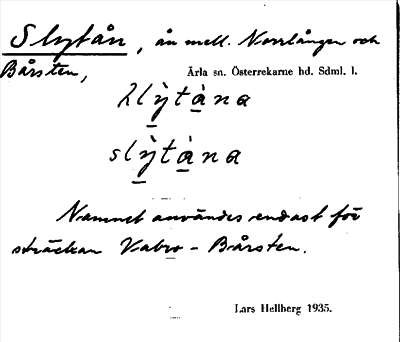 Slytån, ån mell. Norrlången och
Bårsten,
Ärla sn. Österrekarne hd. Sdml. l.
slỳtàna
Namnet användes endast för
sträckan Vabro - Bårsten.
Lars Hellberg 1935.